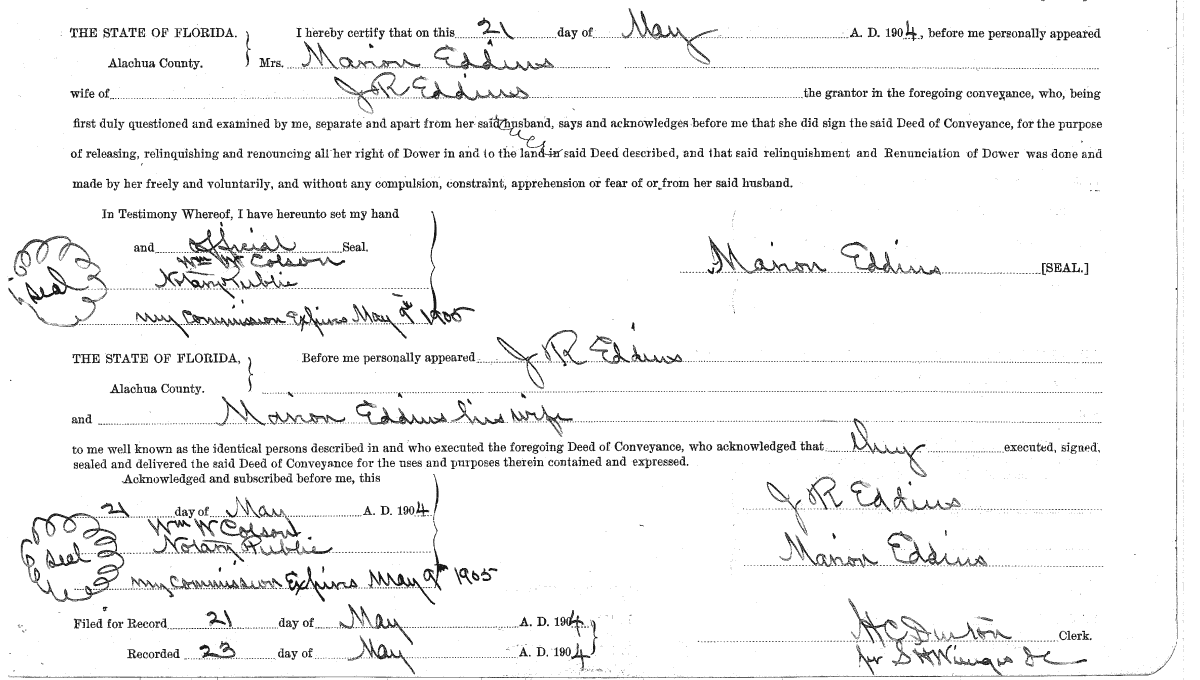 THE STATE OF FLORIDA. I hereby certify that on this 21 day of May A. D. 1904, before me personally appeared
Alachua County. Mrs. Marion Eddins
wife of J R Eddins the grantor in the foregoing conveyance, who, being
first duly questioned and examined by me, separate and apart from her said husband, says and acknowledges before me that she did sign the said Deed of Conveyance, for the purpose
of releasing, relinquishing and renouncing all her right of Dower in and to the land in said Deed described, and that said relinquishment and Renunciation of Dower was done and
made by her freely and voluntarily, and without any compulsion, constraint, apprehension or fear of or from her said husband.
In Testimony Whereof, I have hereunto set my hand
and official Seal.
Wm W Colson
Notary Public
seal
Marion Eddins [SEAL.]
My Commission Expires May 9th 1905
THE STATE OF FLORIDA, Before me personally appeared J R Eddins
Alachua County.
and Marion Eddins his wife
to me well known as the identical persons described in and who executed the foregoing Deed of Conveyance, who acknowledged that they executed, signed,
sealed and delivered the said Deed of Conveyance for the uses and purposes therein contained and expressed.
Acknowledged and subscribed before me, this
21 day of May A. D. 1904
Wm W Colson
Notary Public
seal
My Commission Expires May 9th 1905
J R Eddins
Marion Eddins
Filed for Record 21 day of May A. D. 1904
Recorded 23 day of May A. D. 1904
H C Denton Clerk.
per S H Wienges D C